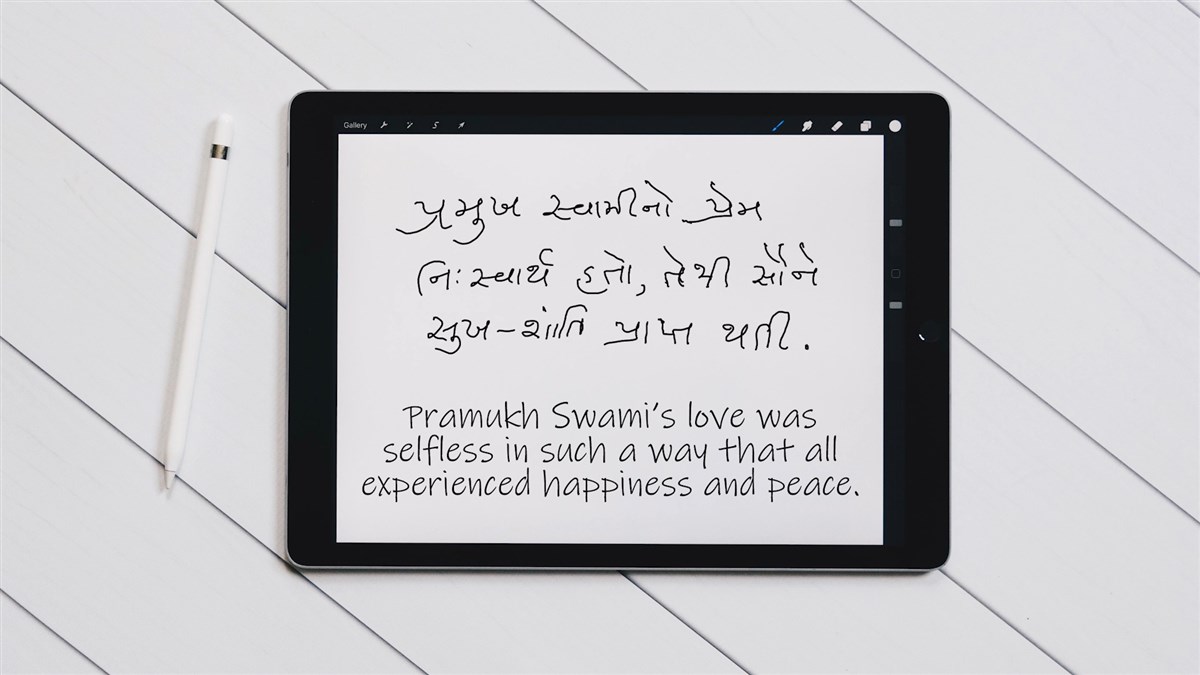 Gallery
પ્રમુખ સ્વામીનો પ્રેમ
નિઃસ્વાર્થ હતો, તેથી સૌને
સુખ-શાંતિ પ્રાપ્ત થતી.
Pramukh Swami's love was
selfless in such a way that all
experienced happiness and peace.